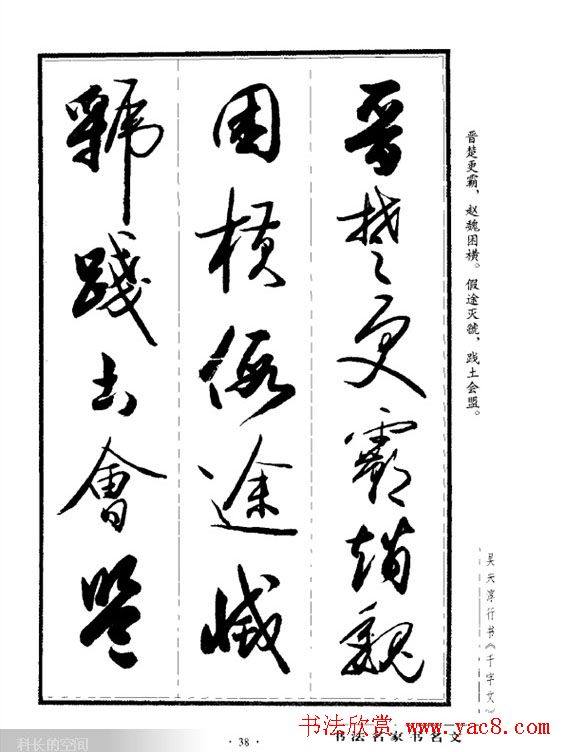 晋楚更霸趙魏
困横假途滅
虢踐土會盟
晋楚更霸，赵魏困横。假途灭虢，践土会盟。
行书《千字文》
· 38 ·
书法名家书名文
书法欣赏 www.yac8.com
科长的空间